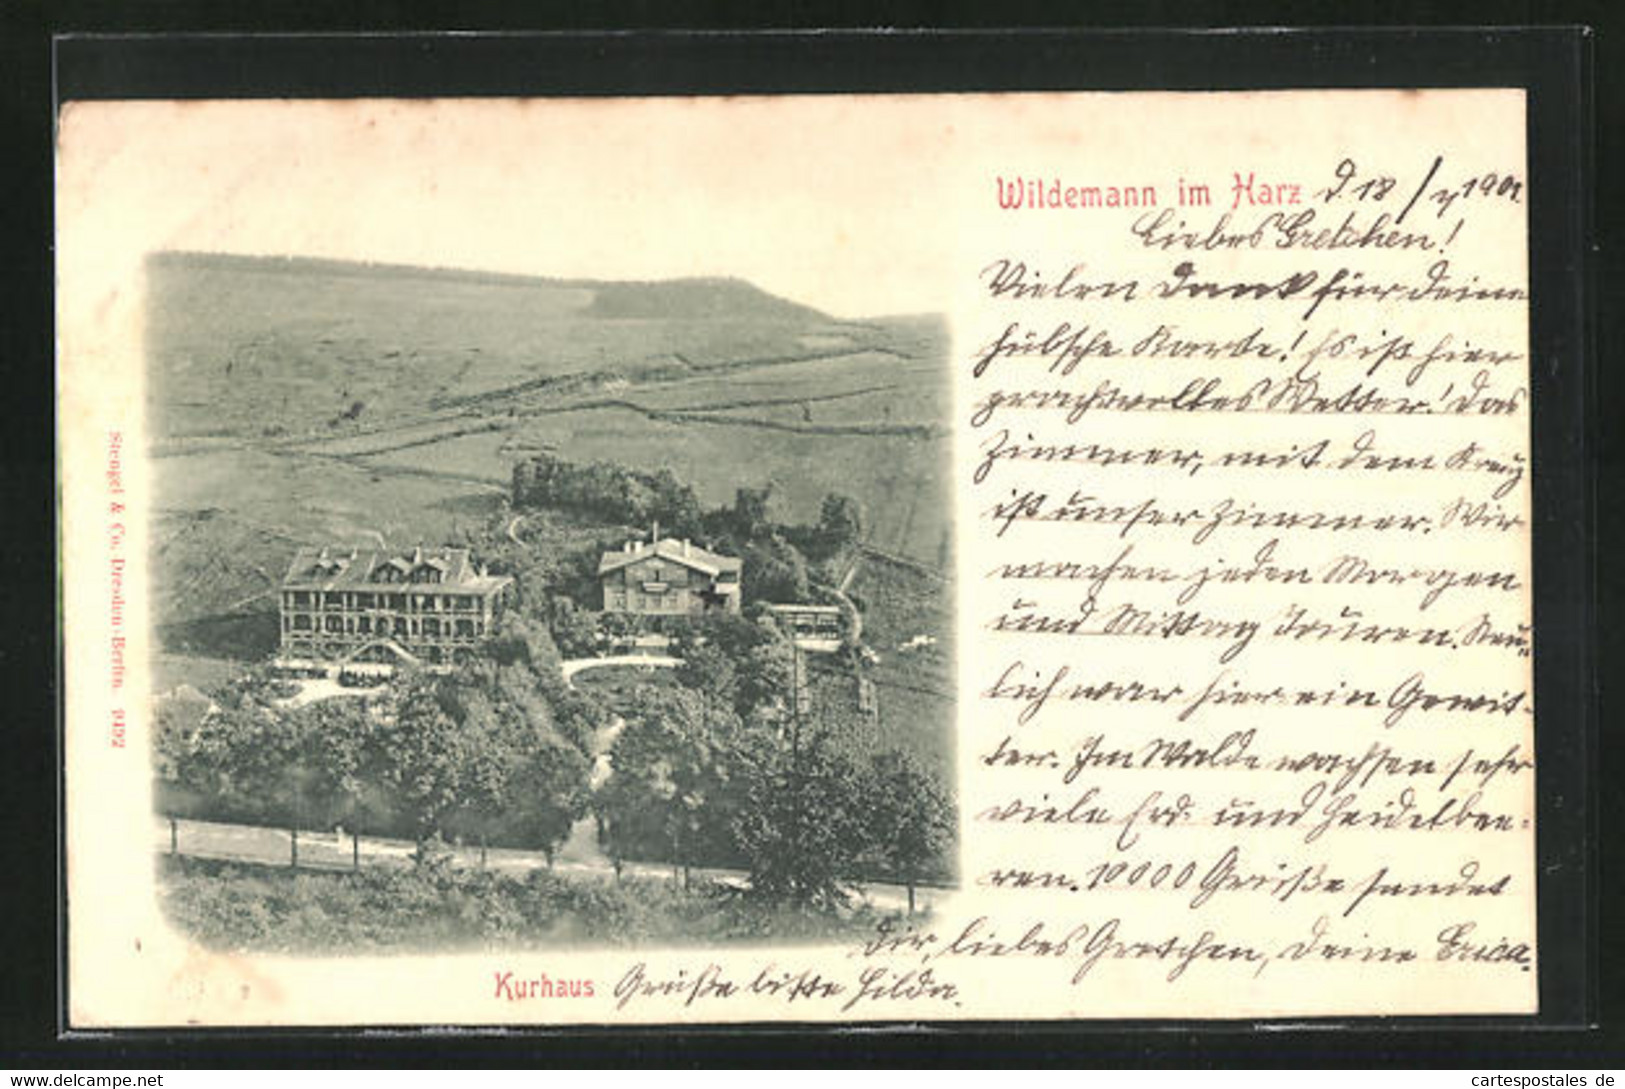 Wildemann im Harz d. 18/7 1901.
Liebes Gretchen!
Vielen Dank für Deine
hübsche Karte! Es ist hier
prachtvolles Wetter! Das
Zimmer, mit dem Kreuz
ist unser Zimmer. Wir
machen jeden Morgen
und Mittag Touren. Neu-
lich war hier ein Gewit-
ter. Im Walde wachsen sehr
viele Erd- und Heidelbee-
ren. 10000 Grüße sendet
Dir, liebes Gretchen, Deine Erica.
Kurhaus Grüße bitte Hilda.
Stengel & Co. Dresden-Berlin 9492
www.cartespostales.de